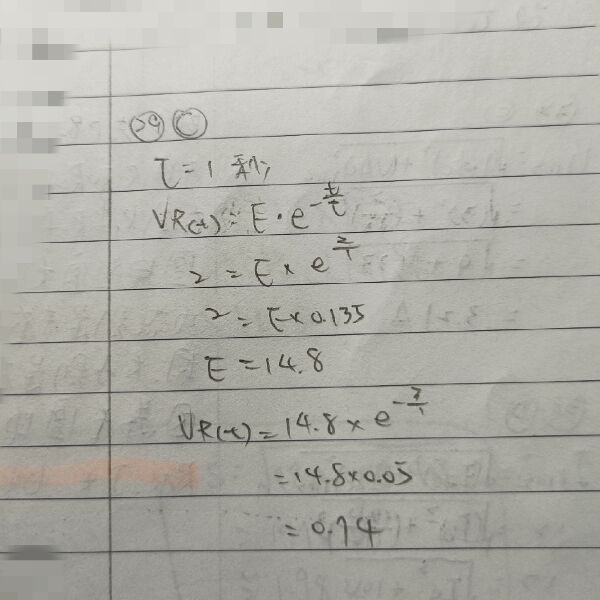 59 C
τ = 1 秒
VR(t) = E · e^-t/τ
2 = E × e^2/1
2 = E × 0.135
E = 14.8
VR(t) = 14.8 × e^-3/1
= 14.8 × 0.05
= 0.74